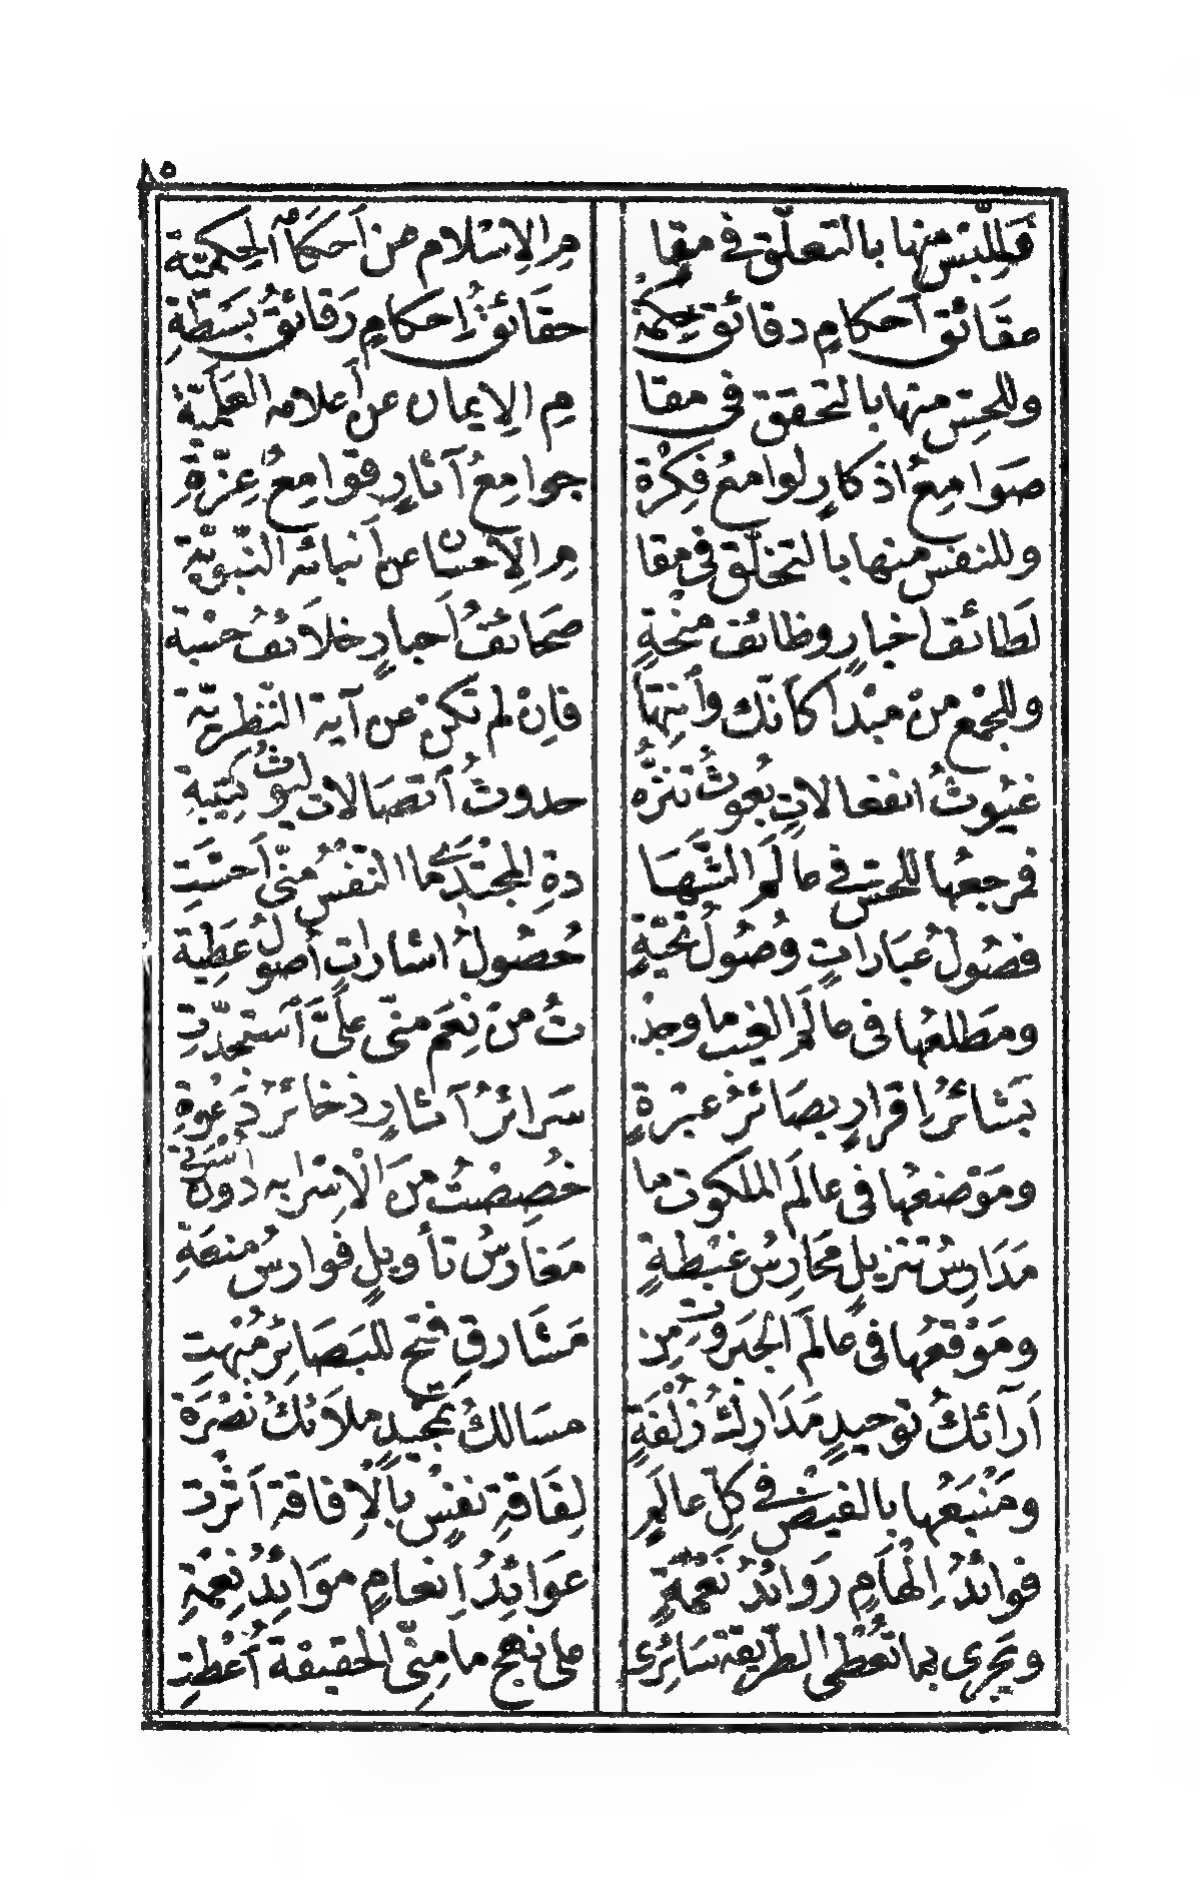 ٨٥
فَلِلَّبْسِ منها بالتعلّق في مقا مِ الإسْلام عن أَحكامه الحِكَميّة
حقَائق أحكامٍ دقائق حِكمة حقَائقُ إحكامٍ رَقائقُ بَسْطَةِ
وللحِسّ منها بالتحقق في مقا مِ الإيمان عن أَعلامه العَمَليّةِ
صَوَامعُ اذكارٍ لوامعُ فِكْرَةٍ جوامعُ آثارٍ قوامعُ عِزّةِ
وللنفس منها بالتخلّق في مقا مِ الإحسان عن أنبائه النّبَويّةِ
لَطائفُ اخبارٍ وظائف منْحَةٍ صَحائفُ أَحبارٍ خلاَئفُ حسْبة
وللجَمْع منْ مَبْدا كأنّك وانتِها فاِنْ لم تكنْ عن آية النّظريّة
غيُوثُ انفعالاتٍ بُعوثُ تنَزُّه حدوثُ اتّصَالات ليُوثُ كتيبةِ
فمرجعُها للحسّ في عالَم الشّهَا دةِ المجْتَدِي ما النّفسُ منّي أَحسَّتِ
فصُولُ عبَاراتٍ وُصُولُ تحيّةٍ حُصُولُ اشاراتٍ أصولُ عَطِية
ومَطلعُها في عالَم الغيب ما وجَدْ تُ منْ نِعَم منّي علَيَّ اَسْتَجدّتِ
بَشائرُ اِقرارٍ بصَائرُ عبْرَةٍ سَرائرُ آثارٍ ذخائرُ دَعْوةِ
ومَوْضعُها في عالَم الملكوت ما خُصِصْتُ منَ الْاِسْرا به دون أُسْرَتي
مَدَارِسُ تنزيلٍ مَحارِسُ غبْطةٍ مَغارسُ تأويلٍ فوارسُ منعَةِ
ومَوْقعُها في عالَم الجَبَروتِ مِن مَشارقِ فتحٍ للبَصَائرِ مُبْهِتِ
اَرآئكُ توحيدٍ مَدَارِكُ زُلْفَةٍ مسَالكُ تمجيدٍ ملاَئكُ نُصْرَةِ
ومَنْبَعُها بالفيْض في كلّ عالَمٍ لِفَاقةِ نفسٍ بالْاِفاقة اَثْرَتِ
فوائدُ اِلْهَامٍ رَوائدُ نعْمَةٍ عوَائدُ اِنعامٍ موَائدُ نِعْمَةِ
ويَجْري بما تُعْطى الطّريقة سَائري على نهج ما مِنّي الحقيقة أُعْطِتِ